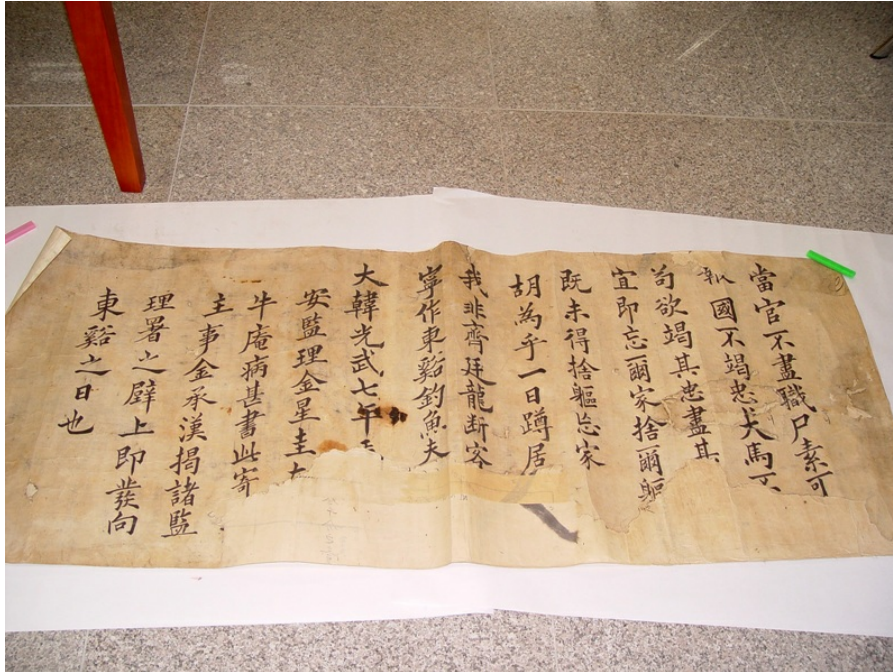 當官不盡職尸素可
報國不竭忠犬馬不
苟欲竭其忠盡其
宜即忘爾家捨爾軀
既未得捨軀忘家
胡為乎一日蹲居
我非齊廷龍断客
寧作東谿釣魚夫
大韓光武七年
安監理金星圭
牛庵病甚書此寄
主事金承漢揭諸監
理署之壁上即發向
東谿之日也